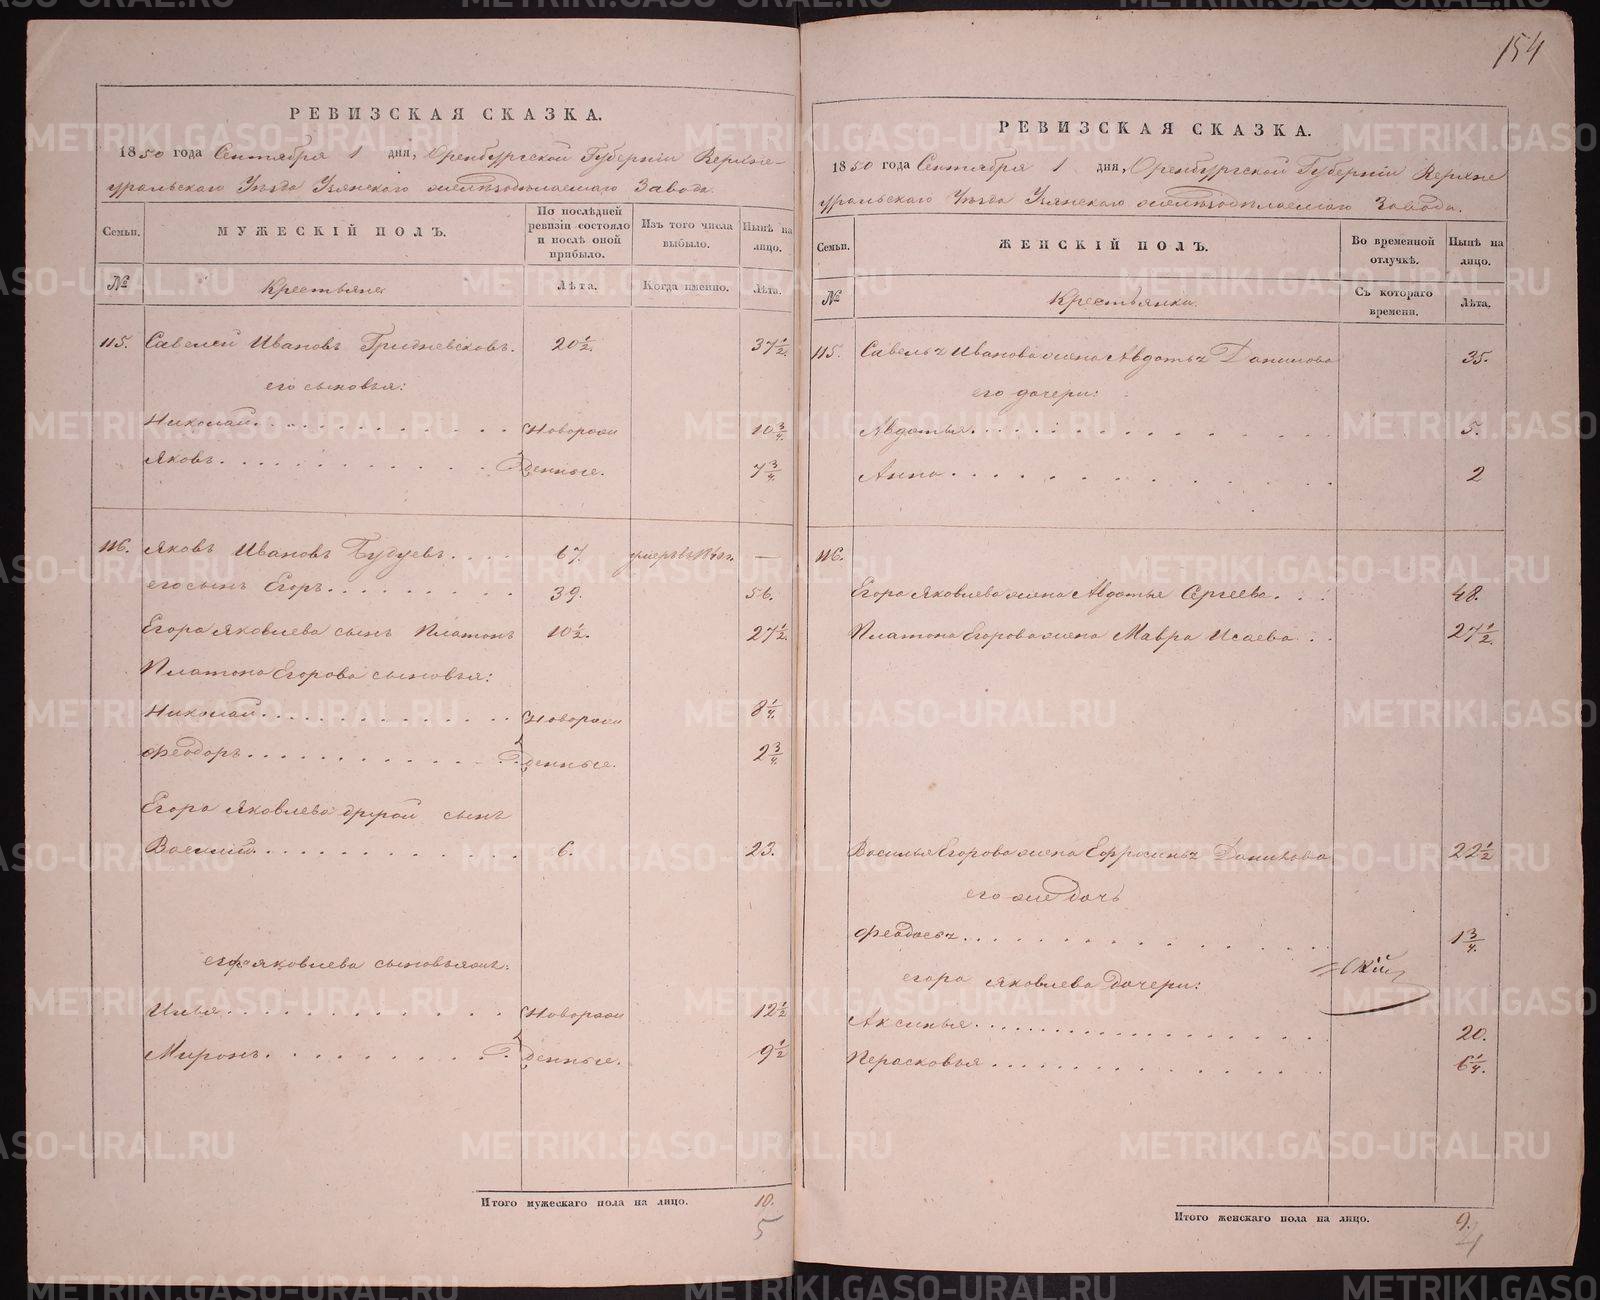 154
РЕВИЗСКАЯ СКАЗКА.
1850 года Сентября 1 дня, Оренбургской Губернии Верхне-
уральскаго Уѣзда Узянскаго железодѣлаемаго Завода.
Семьи.
МУЖЕСКІЙ ПОЛЪ.
По послѣдней ревизіи состояло и послѣ оной прибыло.
Изъ того числа выбыло.
Нынѣ на лицо.
№
Крестьяне
Лѣта.
Когда именно.
Лѣта.
115. Савелей Ивановъ 20½. 37½.
его сыновья:
Николай Новорож 10¾.
Яковъ денные. 7¾.
116. Яковъ Ивановъ 67. умеръ въ —
его сынъ Егоръ 39. 56.
Егора Яковлева сынъ Платонъ 10½. 27½.
Платона Егорова сыновья:
Николай Новорож 8¼.
Феодоръ денные. 2¾.
Егора Яковлева другой сынъ
Василий 6. 23.
его Яковлева сыновья
Илья Новорож 12½
Миронъ денные. 9½
Итого мужескаго пола на лицо. 10.
5
РЕВИЗСКАЯ СКАЗКА.
1850 года Сентября 1 дня, Оренбургской Губерніи Верхне
уральскаго Уѣзда Узянскаго железодѣлаемаго Завода.
Семьи.
ЖЕНСКІЙ ПОЛЪ.
Во временной отлучкѣ.
Нынѣ на лицо.
№
Крестьянки
Съ котораго времени.
Лѣта.
115. Савелья Иванова жена Авдотья Данилова 35.
его дочери:
Авдотья 5.
Анна 2
116.
Егора Яковлева жена Авдотья Сергеева 48.
Платона Егорова жена Мавра Исаева 27½.
Василья Егорова жена Ефросинья Данилова 22½
его же дочь
Феодосья 1¾.
егора яковлева дочери:
Аксинья 20.
Перасковья 6¼.
Итого женскаго пола на лицо. 9.
4
METRIKI.GASO-URAL.RU